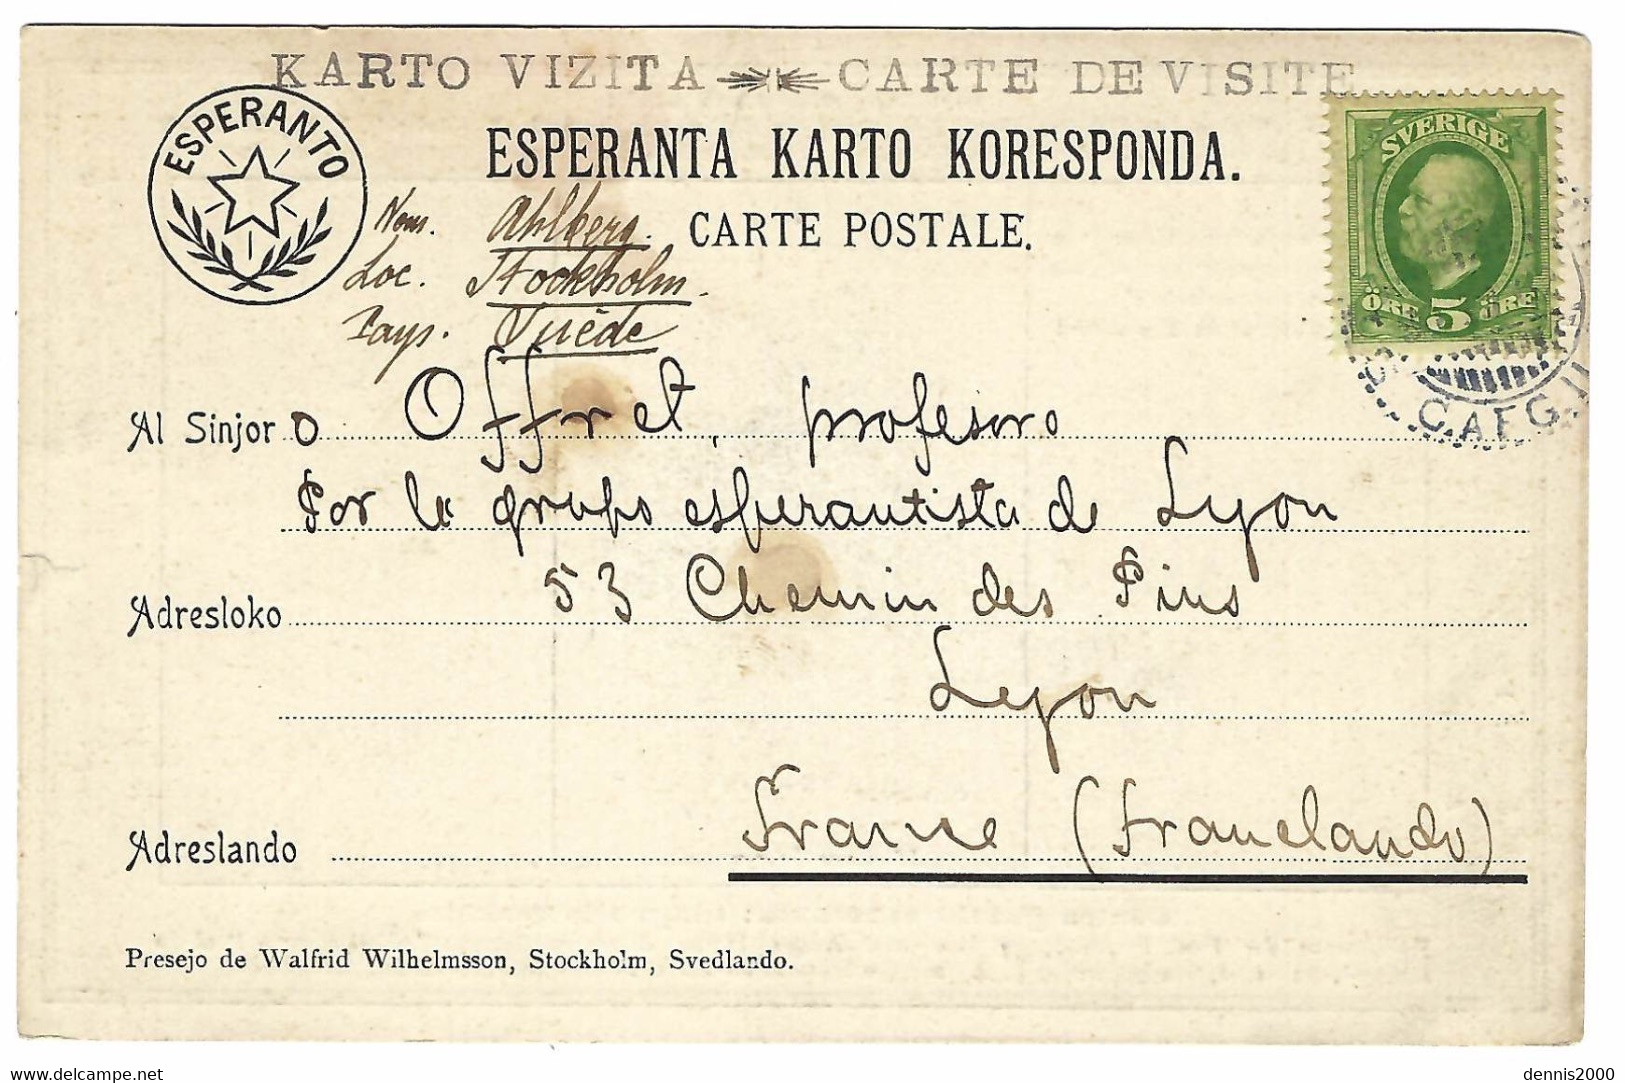 KARTO VIZITA CARTE DE VISITE
ESPERANTO
ESPERANTA KARTO KORESPONDA.
CARTE POSTALE.
SVERIGE
ÖRE 5 ÖRE
C.A.F.G.
Nom. Ahlberg.
Loc. Stockholm.
Pays. Suède
Al Sinjoro Offret, profesoro
Por la grupo esperantista de Lyon
Adresloko 53 Chemin des Pins
Lyon
Adreslando France (Franclando)
Presejo de Walfrid Wilhelmsson, Stockholm, Svedlando.
delcampe.net
dennis2000